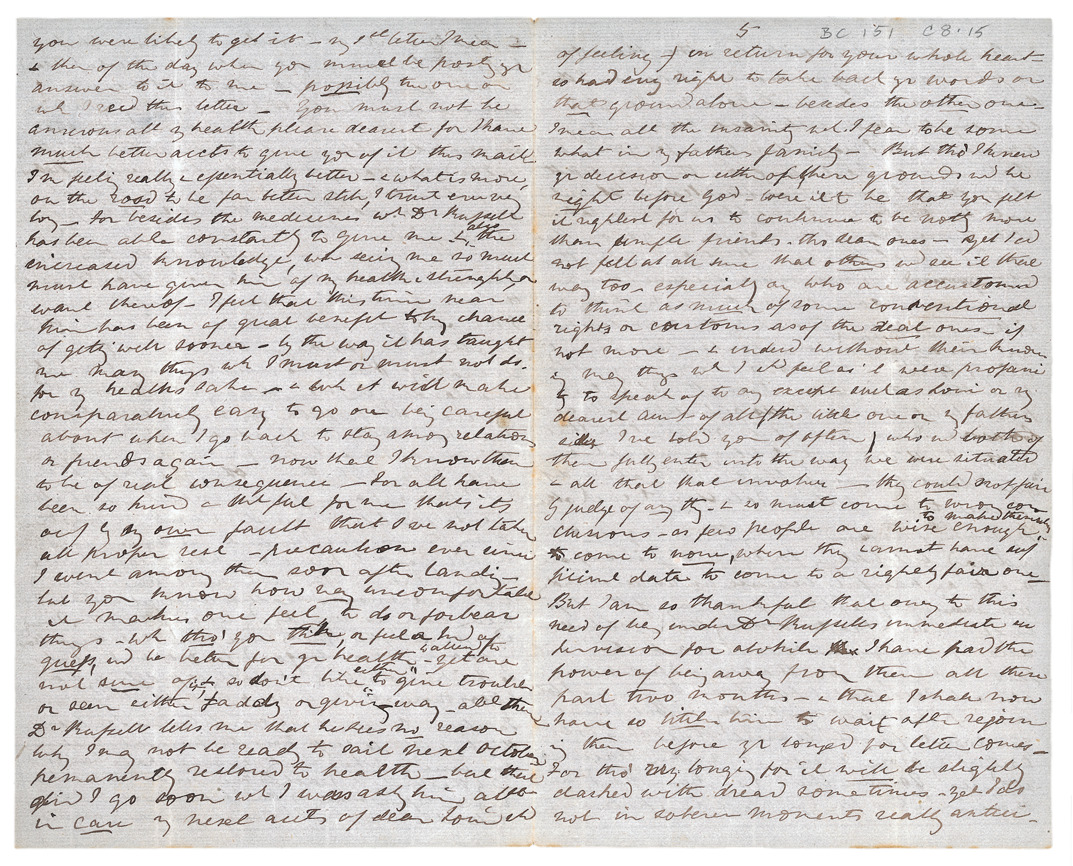 you were likely to get it - my 1st letter I mean -
& then of the day when you must be posting yr
answer to it to me - possibly the one on
wh I read this letter - You must not be
anxious abt my health please dearest for I have
much better accts to give you of it this mail.
I'm feeling really & essentially better - & what is more,
on the road to be far better still, I trust ere very
long - for besides the medicines wh Dr Russell
has been able constantly to give me, also the
increased knowledge, wh seeing me so much
must have given him of my health & strength, or
want thereof - I feel that this time near
him has been of great benefit to my chance
of getting well sooner - by the way it has taught
me many things wh I must or must not do.
for my health's sake - & wh it will make
comparatively easy to go on being careful
about when I go back to stay among relations
or friends again - now that I know them
to be of real consequence - For all have
been so kind & thoughtful for me that it's
only my own fault that I've not taken
all proper rest - precaution ever since
I went among them soon after landing
but you know how very uncomfortable
it makes one feel to do or forbear
things - wh tho' you think or feel a kind of
guess wd be better for yr health - yet are
not sure of, & so don't like to "give trouble"
or seem either faddy or "giving way" - all this
Dr Russell tells me that he sees no reason
why I may not be ready to sail next October
permanently restored to health - but that
given I go soon wh I was asking him abt
in case my next accts of dear
5
BC 151 C8.15
of feeling) in return for your whole heart -
so had every right to take back yr words on
that ground alone - besides the other one -
I mean all the insanity wh I fear to be some
what in my father's family - But tho' I knew
yr decision on either of these grounds wd be
right before God - were it to be that you felt
it rightest for us to continue to be nothing more
than simple friends - tho dear ones - yet I'd
not felt at all sure that others wd see it that
way too - especially any who are accustomed
to think as much of some conventional
rights or customs as of the real ones - if
not more - & indeed without their knowing
many things wh I shd feel as if I were profane
to speak of to any except such as Louie or my
dearest aunt - of all (the little one on my father's
side I've told you of often) who wd both of
them fully enter into the way we were situated
& all that that involves - they could not fairly
judge of anything - & so must come to wrong con-
clusions - as few people are wise enough
to come to none, when they cannot have suf-
ficient data to come to a rightly fair one -
But I am so thankful that owing to this
need of being under Dr Russell's immediate su-
pervision for awhile I have had the
power of being away from them all these
past two months - & that I shall now
have so little time to wait after rejoin-
ing them before yr longed for letter comes -
For tho' my longing for it will be slightly
dashed with dread sometimes - yet I do
not in soberer moments really antici-